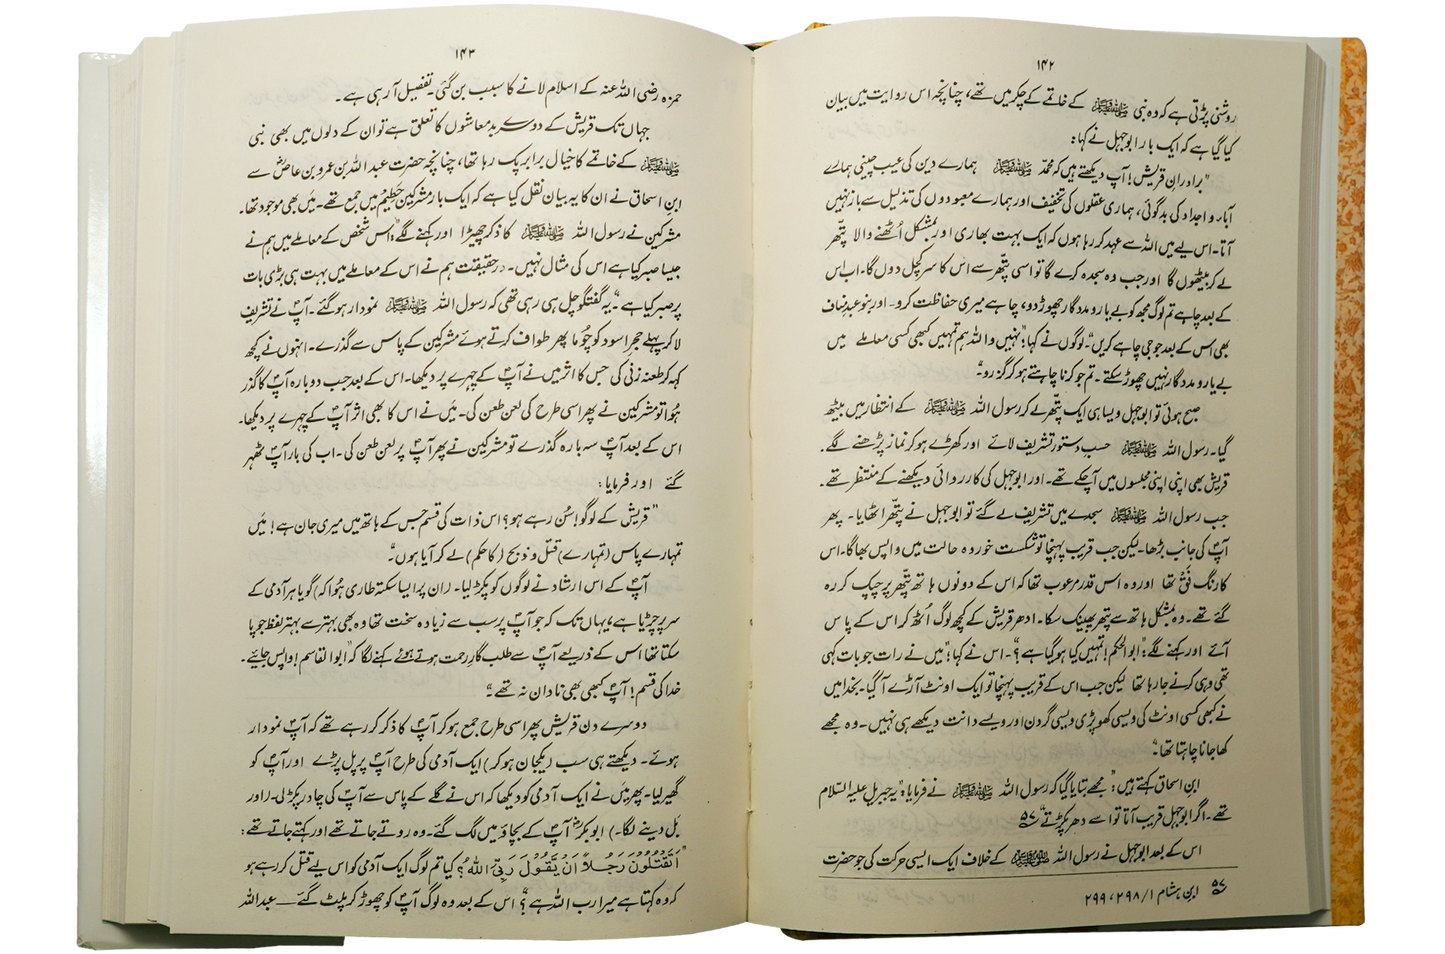 ۱۴۲
روشنی پڑتی ہے کہ وہ نبی ﷺ کے خاتمے کے چکر میں تھے، چنانچہ اس روایت میں بیان
کیا گیا ہے کہ ایک بار ابوجہل نے کہا:
"برادرانِ قریش! آپ دیکھتے ہیں کہ محمد ﷺ ہمارے دین کی عیب چینی ہمارے
آباء و اجداد کی بدگوئی، ہماری عقلوں کی تخفیف اور ہمارے معبودوں کی تذلیل سے باز نہیں
آتا۔ اس لیے میں اللہ سے عہد کر رہا ہوں کہ ایک بہت بھاری اور بمشکل اُٹھنے والا پتھر
لے کر بیٹھوں گا اور جب وہ سجدہ کرے گا تو اسی پتھر سے اس کا سر کچل دوں گا۔ اب اس
کے بعد چاہے تم لوگ مجھ کو بے یارو مددگار چھوڑ دو، چاہے میری حفاظت کرو۔ اور بنو عبد مناف
بھی اس کے بعد جو جی چاہے کریں" لوگوں نے کہا: "نہیں واللہ ہم تمہیں کبھی کسی معاملے میں
بے یارو مددگار نہیں چھوڑ سکتے۔ تم جو کرنا چاہتے ہو کر گزرو۔"
صبح ہوئی تو ابوجہل ویسا ہی ایک پتھر لے کر رسول اللہ ﷺ کے انتظار میں بیٹھ
گیا۔ رسول اللہ ﷺ حسب دستور تشریف لائے اور کھڑے ہو کر نماز پڑھنے لگے۔
قریش بھی اپنی اپنی مجلسوں میں آ چکے تھے۔ اور ابوجہل کی کارروائی دیکھنے کے منتظر تھے۔
جب رسول اللہ ﷺ سجدے میں تشریف لے گئے تو ابوجہل نے پتھر اٹھایا۔ پھر
آپؐ کی جانب بڑھا۔ لیکن جب قریب پہنچا تو شکست خوردہ حالت میں واپس بھاگا۔ اس
کا رنگ فق تھا اور وہ اس قدر مرعوب تھا کہ اس کے دونوں ہاتھ پتھر پر چپک کر رہ
گئے تھے۔ وہ بمشکل ہاتھ سے پتھر پھینک سکا۔ ادھر قریش کے کچھ لوگ اُٹھ کر اس کے پاس
آئے اور کہنے لگے: "ابوالحکم! تمہیں کیا ہو گیا ہے؟" اس نے کہا: "میں نے رات جو بات کہی
تھی وہی کرنے جا رہا تھا لیکن جب اس کے قریب پہنچا تو ایک اونٹ آڑے آ گیا۔ بخدا میں
نے کبھی کسی اونٹ کی ویسی کھوپڑی ویسی گردن اور ویسے دانت دیکھے ہی نہیں۔ وہ مجھے
کھا جانا چاہتا تھا۔"
ابن اسحاق کہتے ہیں: "مجھے بتایا گیا کہ رسول اللہ ﷺ نے فرمایا: "یہ جبریل علیہ السلام
تھے۔ اگر ابوجہل قریب آتا تو اسے دھر پکڑتے" ۵۷
اس کے بعد ابوجہل نے رسول اللہ ﷺ کے خلاف ایک ایسی حرکت کی جو حضرت
۵۷ ابن ہشام ۱/۲۹۸، ۲۹۹
۱۴۳
حمزہ رضی اللہ عنہ کے اسلام لانے کا سبب بن گئی۔ تفصیل آ رہی ہے۔
جہاں تک قریش کے دوسرے بدمعاشوں کا تعلق ہے تو ان کے دلوں میں بھی نبی
ﷺ کے خاتمے کا خیال برابر پک رہا تھا، چنانچہ حضرت عبداللہ بن عمرو بن عاصؓ سے
ابن اسحاق نے ان کا یہ بیان نقل کیا ہے کہ ایک بار مشرکین حَطِیمؔ میں جمع تھے۔ میں بھی موجود تھا۔
مشرکین نے رسول اللہ ﷺ کا ذکر چھیڑا اور کہنے لگے: "اس شخص کے معاملے میں ہم نے
جیسا صبر کیا ہے اس کی مثال نہیں۔ درحقیقت ہم نے اس کے معاملے میں بہت ہی بڑی بات
پر صبر کیا ہے"۔ یہ گفتگو چل ہی رہی تھی کہ رسول اللہ ﷺ نمودار ہو گئے۔ آپ نے تشریف
لا کر پہلے حجر اسود کو چُوما پھر طواف کرتے ہوئے مشرکین کے پاس سے گذرے۔ انہوں نے کچھ
کہہ کر طعنہ زنی کی جس کا اثر میں نے آپؐ کے چہرے پر دیکھا۔ اس کے بعد جب دوبارہ آپؐ کا گذر
ہوا تو مشرکین نے پھر اسی طرح کی لعن طعن کی۔ میں نے اس کا بھی اثر آپؐ کے چہرے پر دیکھا۔
اس کے بعد آپؐ سہ بارہ گذرے تو مشرکین نے پھر آپؐ پر لعن طعن کی۔ اب کی بار آپؐ ٹھہر
گئے اور فرمایا:
"قریش کے لوگو! سُن رہے ہو؟ اس ذات کی قسم جس کے ہاتھ میں میری جان ہے! میں
تمہارے پاس (تمہارے) قتل و ذبح (کا حکم) لے کر آیا ہوں"۔
آپؐ کے اس ارشاد نے لوگوں کو پکڑ لیا۔ (ان پر ایسا سکتہ طاری ہُوا کہ) گویا ہر آدمی کے
سر پر چڑیا ہے، یہاں تک کہ جو آپؐ پر سب سے زیادہ سخت تھا وہ بھی بہتر سے بہتر لفظ جو پا
سکتا تھا اس کے ذریعے آپؐ سے طلب گارِ رحمت ہوتے ہوئے کہنے لگا کہ "ابوالقاسم! واپس جائیے۔
خدا کی قسم! آپؐ کبھی بھی نادان نہ تھے"۔
دوسرے دن قریش پھر اسی طرح جمع ہو کر آپؐ کا ذکر کر رہے تھے کہ آپؐ نمودار
ہوئے۔ دیکھتے ہی سب (یکجان ہو کر) ایک آدمی کی طرح آپؐ پر پل پڑے اور آپؐ کو
گھیر لیا۔ پھر میں نے ایک آدمی کو دیکھا کہ اس نے گلے کے پاس سے آپؐ کی چادر پکڑ لی۔ (اور
بل دینے لگا۔) ابوبکرؓ آپؐ کے بچاؤ میں لگ گئے۔ وہ روتے جاتے تھے اور کہتے جاتے تھے:
"اَتَقْتُلُوْنَ رَجُلًا اَنْ يَّقُوْلَ رَبِّيَ اللهُ؟ کیا تم لوگ ایک آدمی کو اس لیے قتل کر رہے ہو
کہ وہ کہتا ہے میرا رب اللہ ہے؟" اس کے بعد وہ لوگ آپؐ کو چھوڑ کر پلٹ گئے — عبداللہ